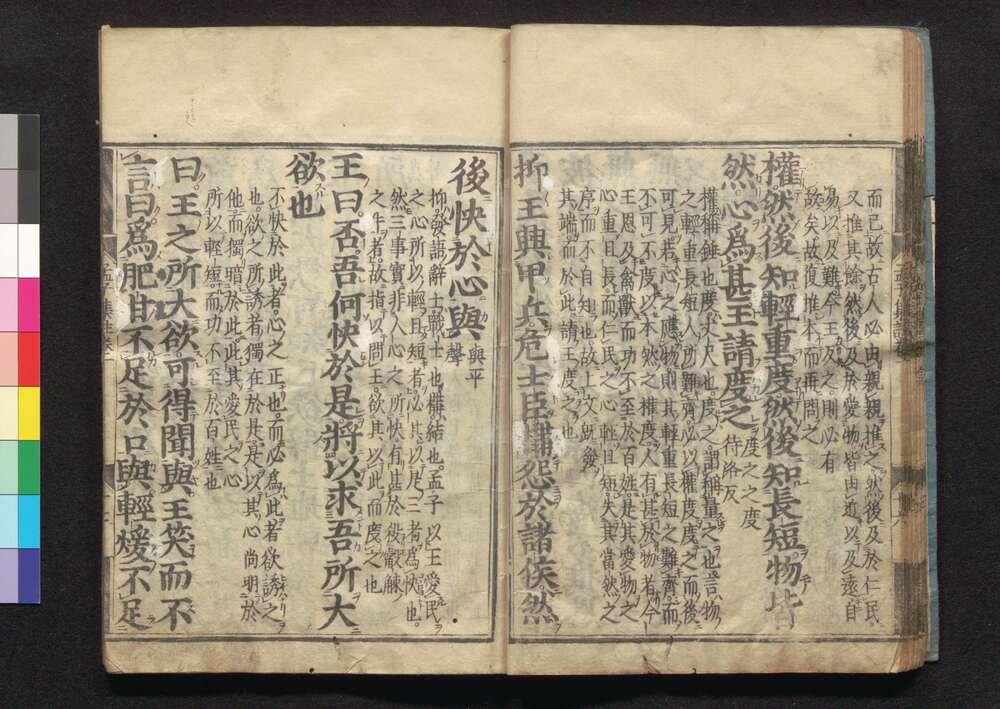 而已故古人必由親親推之然後及於仁民
又推其餘然後及於愛物皆由近以及遠自
易以及難今王反之則必有
故矣故復推本而再問之
權然後知輕重度然後知長短物皆
然心爲甚王請度之
度之之度
待洛反
權稱錘也度丈尺也度之謂稱量之也言物
之輕重長短人所難齊必以權度度之而後
可見若心之應物則其輕重長短之難齊而
不可不度以本然之權度又有甚於物者今
王恩及禽獸而功不至於百姓是其愛物之
心重且長而仁民之心輕且短失其當然之
序而不自知也故上文既發
其端而於此請王度之也
抑王興甲兵危士臣構怨於諸侯然
後快於心與
與平
聲
抑發語辭士戰士也構結也孟子以王愛民
之心所以輕且短者必其以是三者爲快也
然三事實非人心之所快有甚於殺觳觫
之牛者故指以問王欲其以此而度之也
王曰否吾何快於是將以求吾所大
欲也
不快於此者心之正也而必爲此者欲誘之
也欲之所誘者獨在於是是以其心尚明於
他而獨暗於此此其愛民之心
所以輕短而功不至於百姓也
曰王之所大欲可得聞與王笑而不
言曰爲肥甘不足於口與輕煖不足